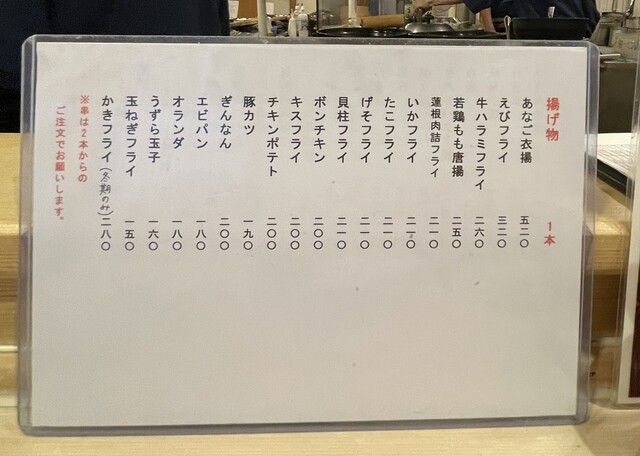 揚げ物 1本
あなご衣揚 五二〇
えびフライ 三二〇
牛ハラミフライ 二六〇
若鶏もも唐揚 二五〇
蓮根肉詰フライ 二一〇
いかフライ 二一〇
たこフライ 二一〇
げそフライ 二一〇
貝柱フライ 二一〇
ボンチキン 二〇〇
キスフライ 二〇〇
チキンポテト 二〇〇
豚カツ 一九〇
ぎんなん 二〇〇
エビパン 一八〇
オランダ 一八〇
うずら玉子 一六〇
玉ねぎフライ 一五〇
かきフライ(冬期のみ) 二八〇
※串は2本からの
ご注文でお願いします。